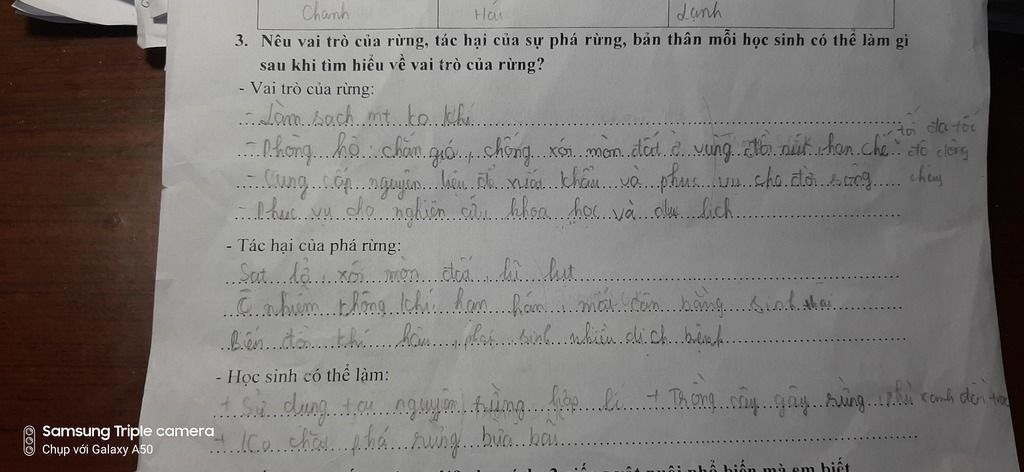 Chanh Hải Lanh
3. Nêu vai trò của rừng, tác hại của sự phá rừng, bản thân mỗi học sinh có thể làm gì
sau khi tìm hiểu về vai trò của rừng?
- Vai trò của rừng:
- Làm sạch mt ko khí
- Phòng hộ: chắn gió, chống xói mòn đất ở vùng đồi núi, hạn chế tối đa tốc
độ dòng
- Cung cấp nguyên liệu để xuất khẩu và phục vụ cho đời sống
chảy
- Phục vụ cho nghiên cứu khoa học và du lịch
- Tác hại của phá rừng:
Sạt lở, xói mòn đất, lũ lụt
Ô nhiễm không khí, hạn hán, mất cân bằng sinh thái
Biến đổi khí hậu, phát sinh nhiều dịch bệnh
- Học sinh có thể làm:
+ Sử dụng tài nguyên rừng hợp lí + Trồng cây gây rừng, phủ xanh đất
+ Ko chặt phá rừng bừa bãi
Samsung Triple camera
Chụp với Galaxy A50